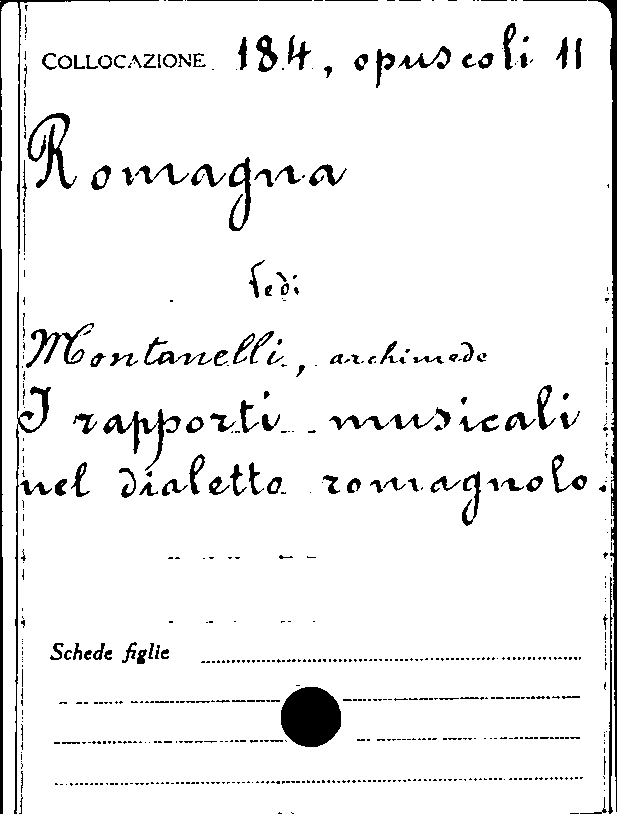 COLLOCAZIONE 184, opuscoli 11
Romagna
Vedi
Montanelli, archimede
I rapporti musicali
nel dialetto romagnolo.
Schede figlie